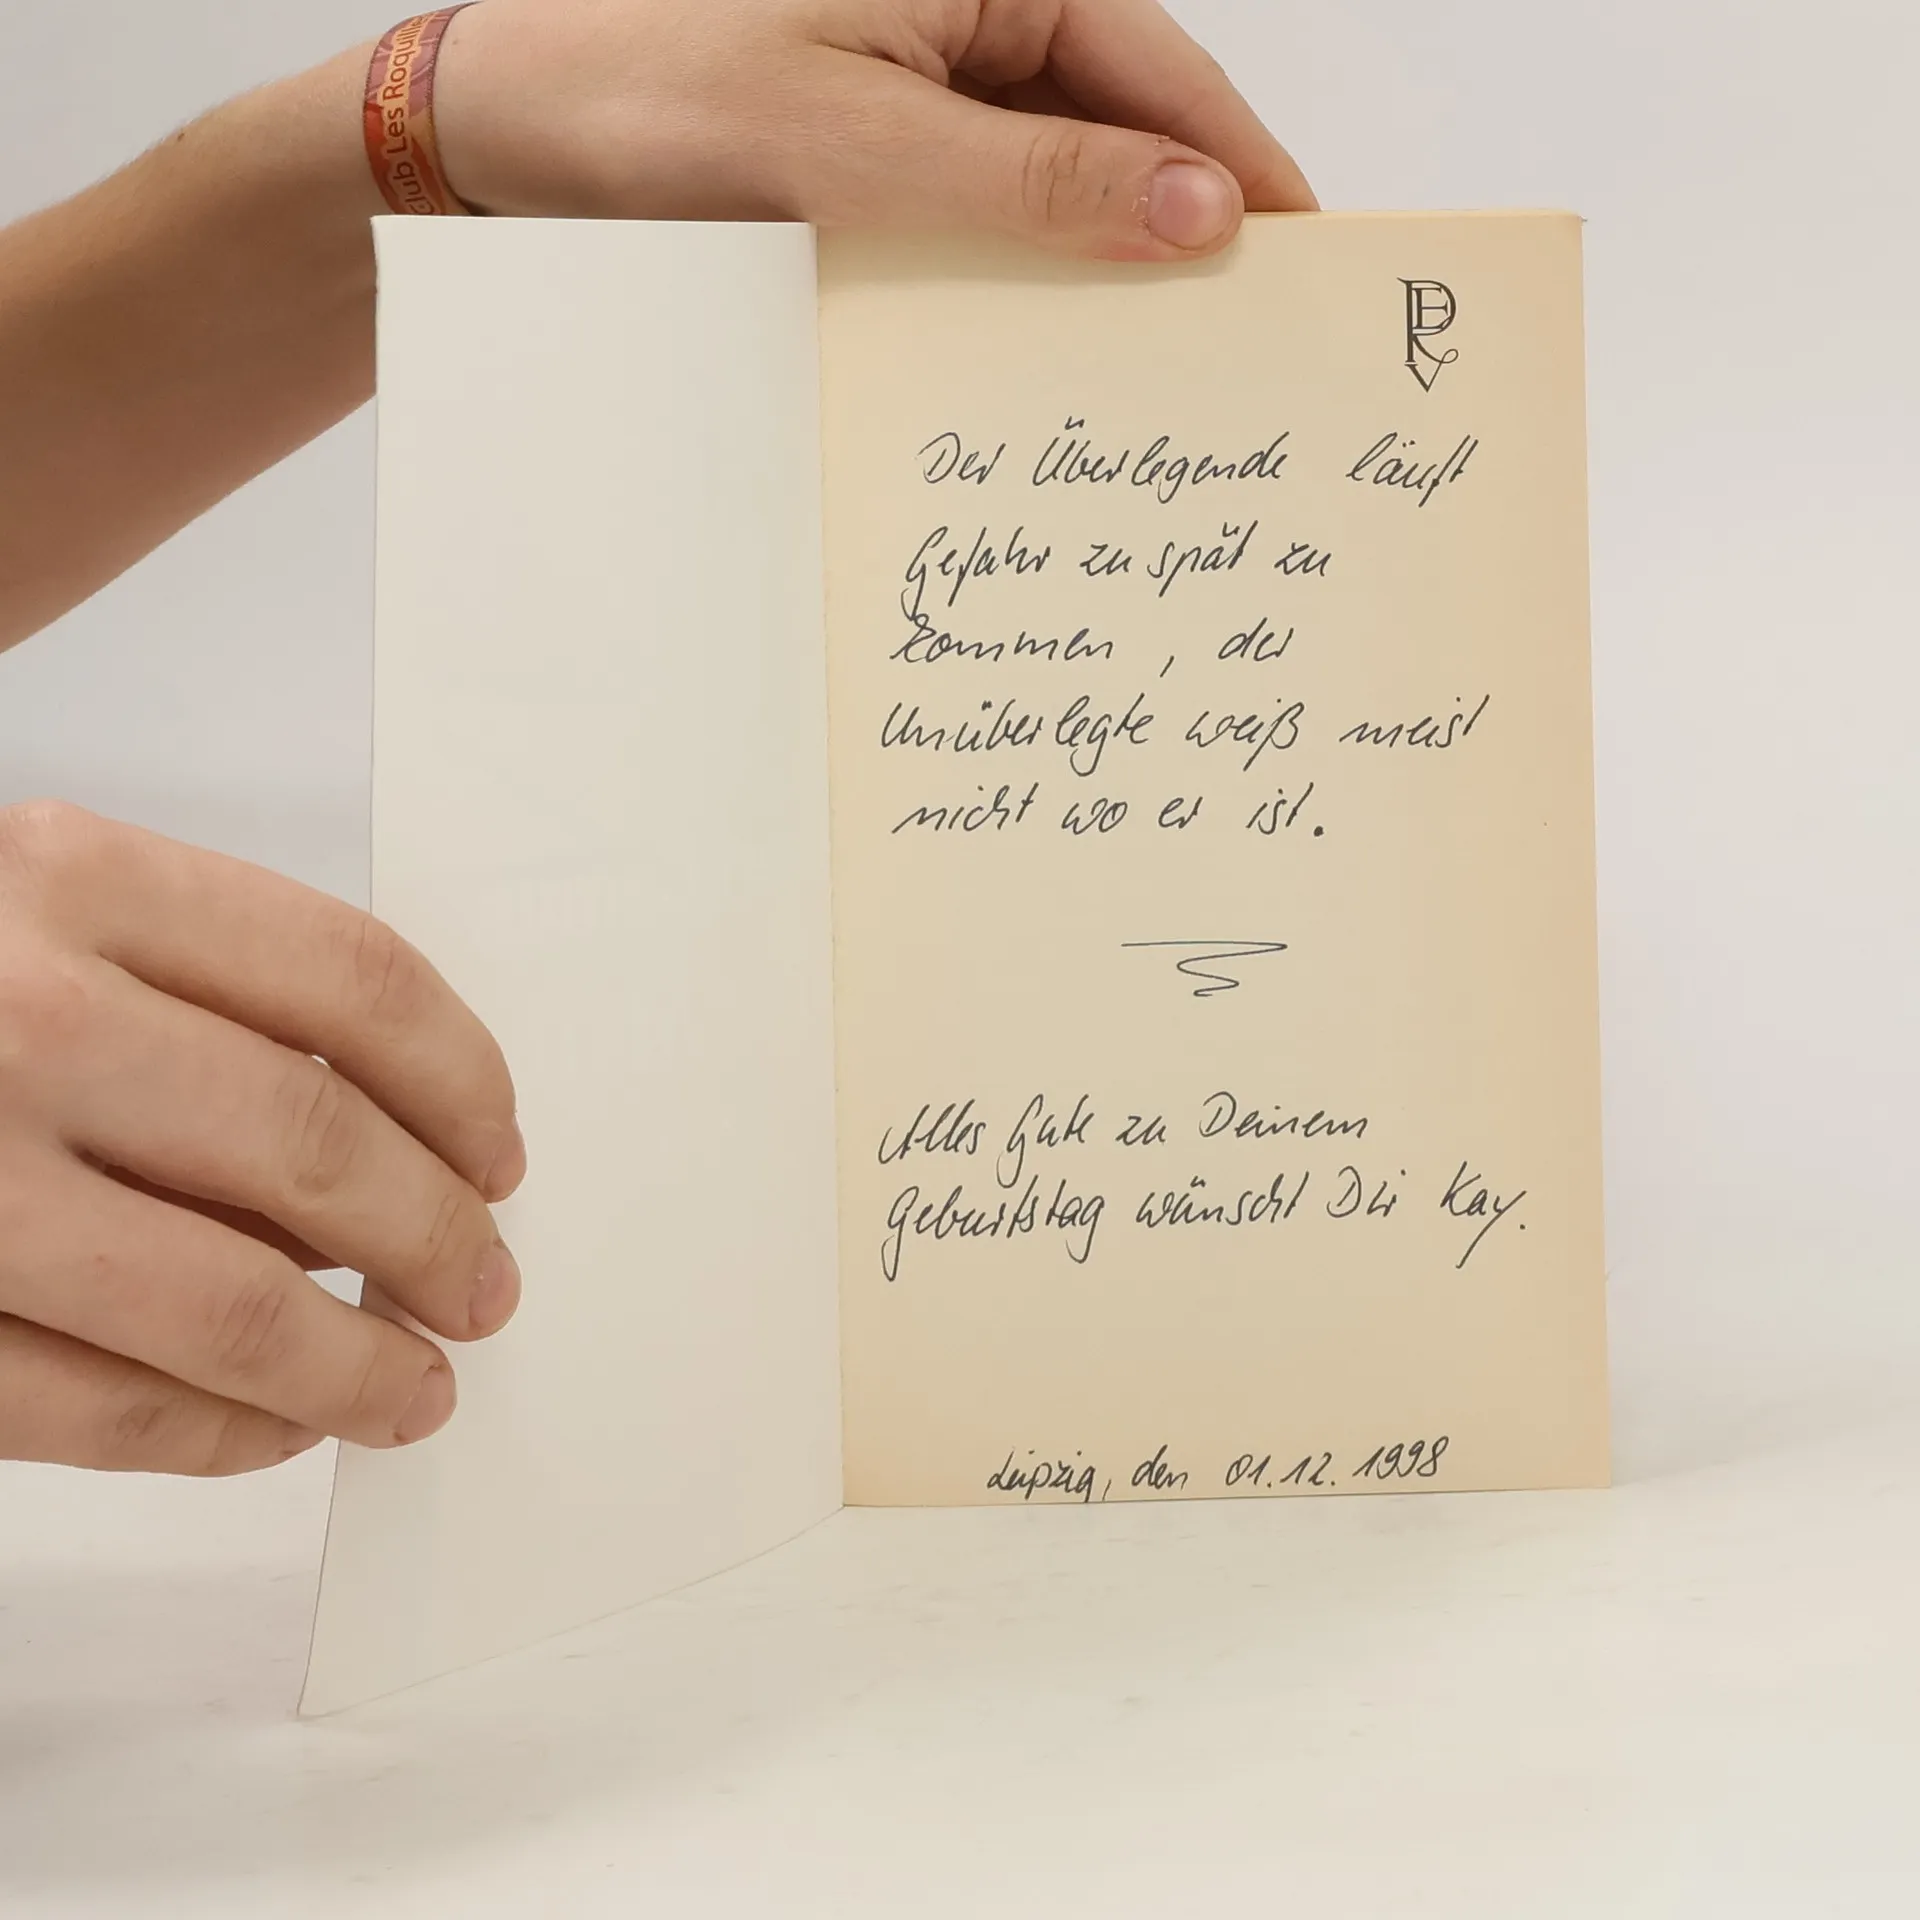 Club Les Roquille
PERV
Der Überlegende läuft
Gefahr zu spät zu
kommen, der
Unüberlegte weiß meist
nicht wo er ist.
Alles Gute zu Deinem
Geburtstag wünscht Dir Kay.
Leipzig, den 01.12.1998